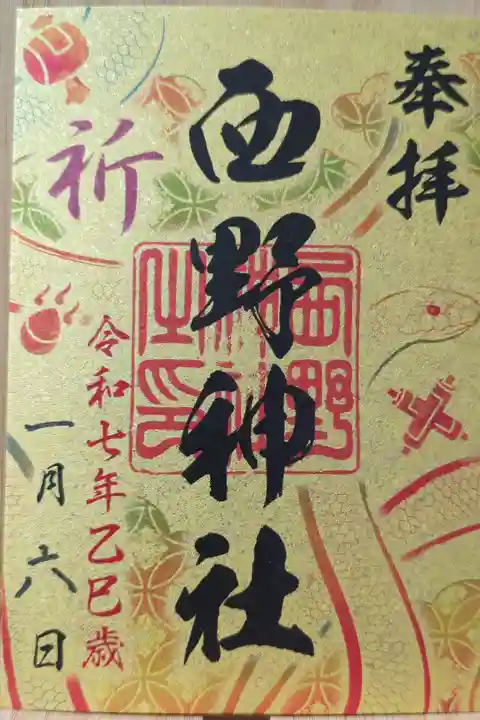 奉拝
西野神社
西野神社之印
祈
令和七年乙巳歳
一月六日